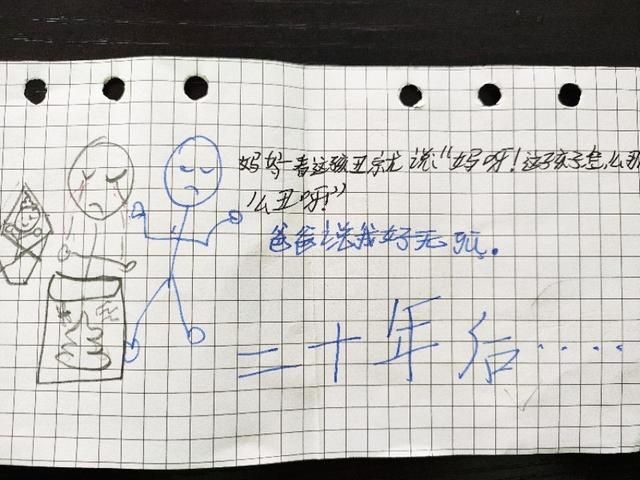 妈妈一看这孩丑就说“妈呀！这孩子怎么那
么丑呀！”
爸爸说我好无语。
二十年后……